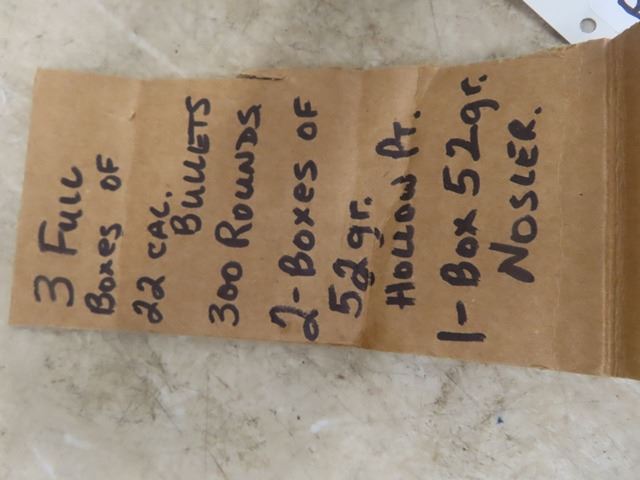 3 FULL
BOXES OF
22 CAL.
BULLETS
300 ROUNDS
2-BOXES OF
52gr.
HOLLOW PT.
1-BOX 52gr.
NOSLER.